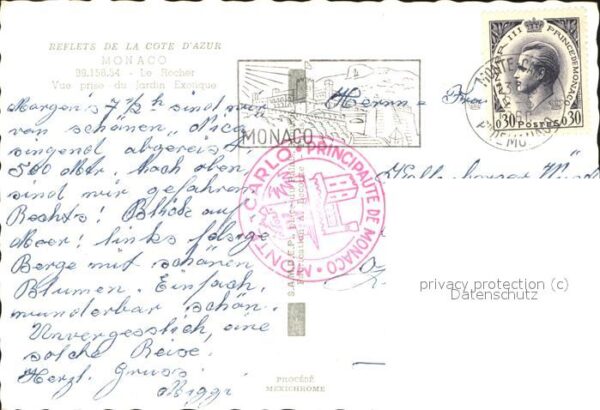 REFLETS DE LA COTE D'AZUR
MONACO
99.158.54 - Le Rocher
Vue prise du Jardin Exotique
Morgens 7½h sind wir
von schönen "Nice"
singend abgereist
500 Mtr. hoch oben
sind wir gefahren
Rechts! Blick auf
Meer! links felsige
Berge mit schönen
Blumen. Einfach,
wunderbar schön.
Unvergesslich, eine
solche Reise.
Herzl. Gruss
MONACO
MONTE-CARLO • PRINCIPAUTÉ DE MONACO •
RAINIER III PRINCE DE MONACO
0,30 POSTES 0,30
PROCÉDÉ
MEXICHROME
privacy protection (c)
Datenschutz